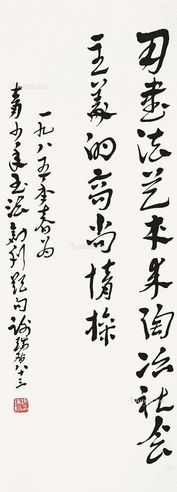 用書法艺术来陶冶社会
主義的高尚情操
一九八五年春为
青少年书法创刊题句 谢瑞阶八十三